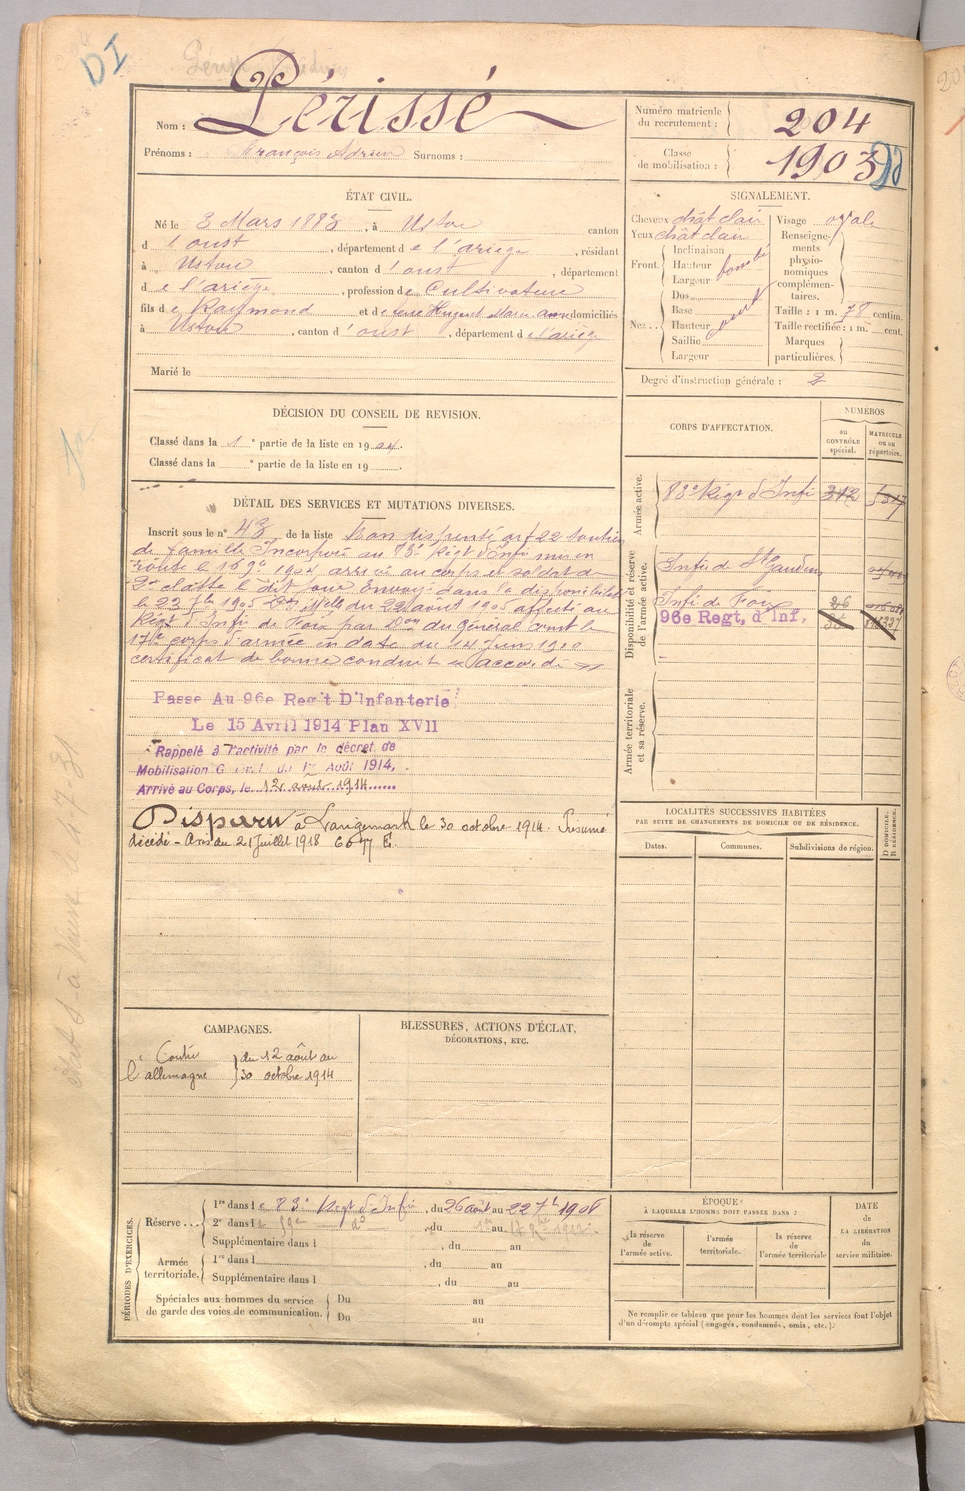 DI
Nom : Périssé
Prénoms : François Adrien Surnoms :
Numéro matricule du recrutement : 204
Classe de mobilisation : 1903
ÉTAT CIVIL.
Né le 3 Mars 1883, à Ustou canton
d'oust, département de l'ariège, résidant
à Ustou, canton d'oust, département
de l'ariège, profession de Cultivateur
fils de Raymond et de domiciliés
à Ustou, canton d'oust, département de l'ariège
Marié le
SIGNALEMENT.
Cheveux chât clair
Yeux chât clair
Front. Inclinaison
Hauteur
Largeur
Nez... Dos
Base
Hauteur
Saillie
Largeur
Visage ovale
Renseignements physionomiques complémentaires.
Taille : 1 m. 78 centim.
Taille rectifiée : 1 m. cent.
Marques particulières.
Degré d'instruction générale : 2
DÉCISION DU CONSEIL DE REVISION.
Classé dans la 1e partie de la liste en 1904.
Classé dans la e partie de la liste en 19
DÉTAIL DES SERVICES ET MUTATIONS DIVERSES.
Inscrit sous le n° 43 de la liste
de famille Incorporé au 83e Régt d'Infie mis en
route le 16 1904 arrivé au corps et soldat de
2e classe le dit jour Envoyé dans la disponibilité
le 23 1905 du 22 août 1905 affecté au
Régt d'Infie de Foix par Don du général comt le
17e corps d'armée en date du 14 Juin 1910
certificat de bonne conduite accordé
Passe Au 96e Reg't D'Infanterie
Le 15 Avril 1914 Plan XVII
Rappelé à l'activité par le décret de
Mobilisation Générale du 1er Août 1914,
Arrivé au Corps, le 12 août 1914
Disparu à Langemark le 30 octobre 1914. Présumé
décédé - Avis du 21 Juillet 1918
CORPS D'AFFECTATION.
NUMÉROS
au CONTRÔLE spécial.
MATRICULE ou au répertoire.
Armée active.
83e Régt d'Infie 312
Disponibilité et réserve de l'armée active.
Infie de St Gaudens
Infie de Foix 26
96e Regt, d'Inf,
Armée territoriale et sa réserve.
LOCALITÉS SUCCESSIVES HABITÉES
PAR SUITE DE CHANGEMENTS DE DOMICILE OU DE RÉSIDENCE.
D DOMICILE. R RÉSIDENCE.
Dates. Communes. Subdivisions de région.
CAMPAGNES.
Contre l'allemagne } du 12 août au
30 octobre 1914
BLESSURES, ACTIONS D'ÉCLAT,
DÉCORATIONS, ETC.
PÉRIODES D'EXERCICES.
Réserve... 1re dans le 83e Régt d'Infie, du 26 août au 22 7bre 1908
2e dans le , du au
Supplémentaire dans l , du au
Armée territoriale. 1re dans l , du au
Supplémentaire dans l , du au
Spéciales aux hommes du service de garde des voies de communication. Du au
Du au
ÉPOQUE
À LAQUELLE L'HOMME DOIT PASSER DANS :
la réserve de l'armée active.
l'armée territoriale.
la réserve de l'armée territoriale
DATE de LA LIBÉRATION du service militaire.
Ne remplir ce tableau que pour les hommes dont les services font l'objet
d'un décompte spécial (engagés, condamnés, omis, etc.).